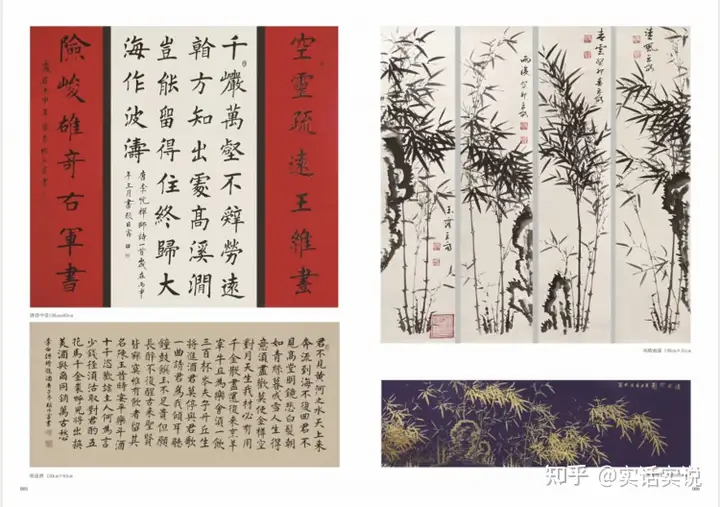 空靈疏遠王維畫
千巖萬壑不辭勞遠
看方知出處高溪澗
豈能留得住終歸大
海作波濤
唐李忱禪師詩一首歲在丙申
年三月書
險峻雄奇右軍書
君不見黃河之水天上來
奔流到海不復回君不
見高堂明鏡悲白髮朝
如青絲暮成雪人生得
意須盡歡莫使金樽空
對月天生我材必有用
千金散盡還復來烹羊
宰牛且為樂會須一飲
三百杯岑夫子丹丘生
將進酒君莫停與君歌
一曲請君為我傾耳聽
鐘鼓饌玉不足貴但願
長醉不復醒古來聖賢
皆寂寞惟有飲者留其
名陳王昔時宴平樂斗酒
十千恣歡謔主人何為言
少錢徑須沽取對君酌五
花馬千金裘呼兒將出換
美酒與爾同銷萬古愁
李白詩將進酒
清風
春雲癸卯
雨後癸卯
知乎 @实话实说